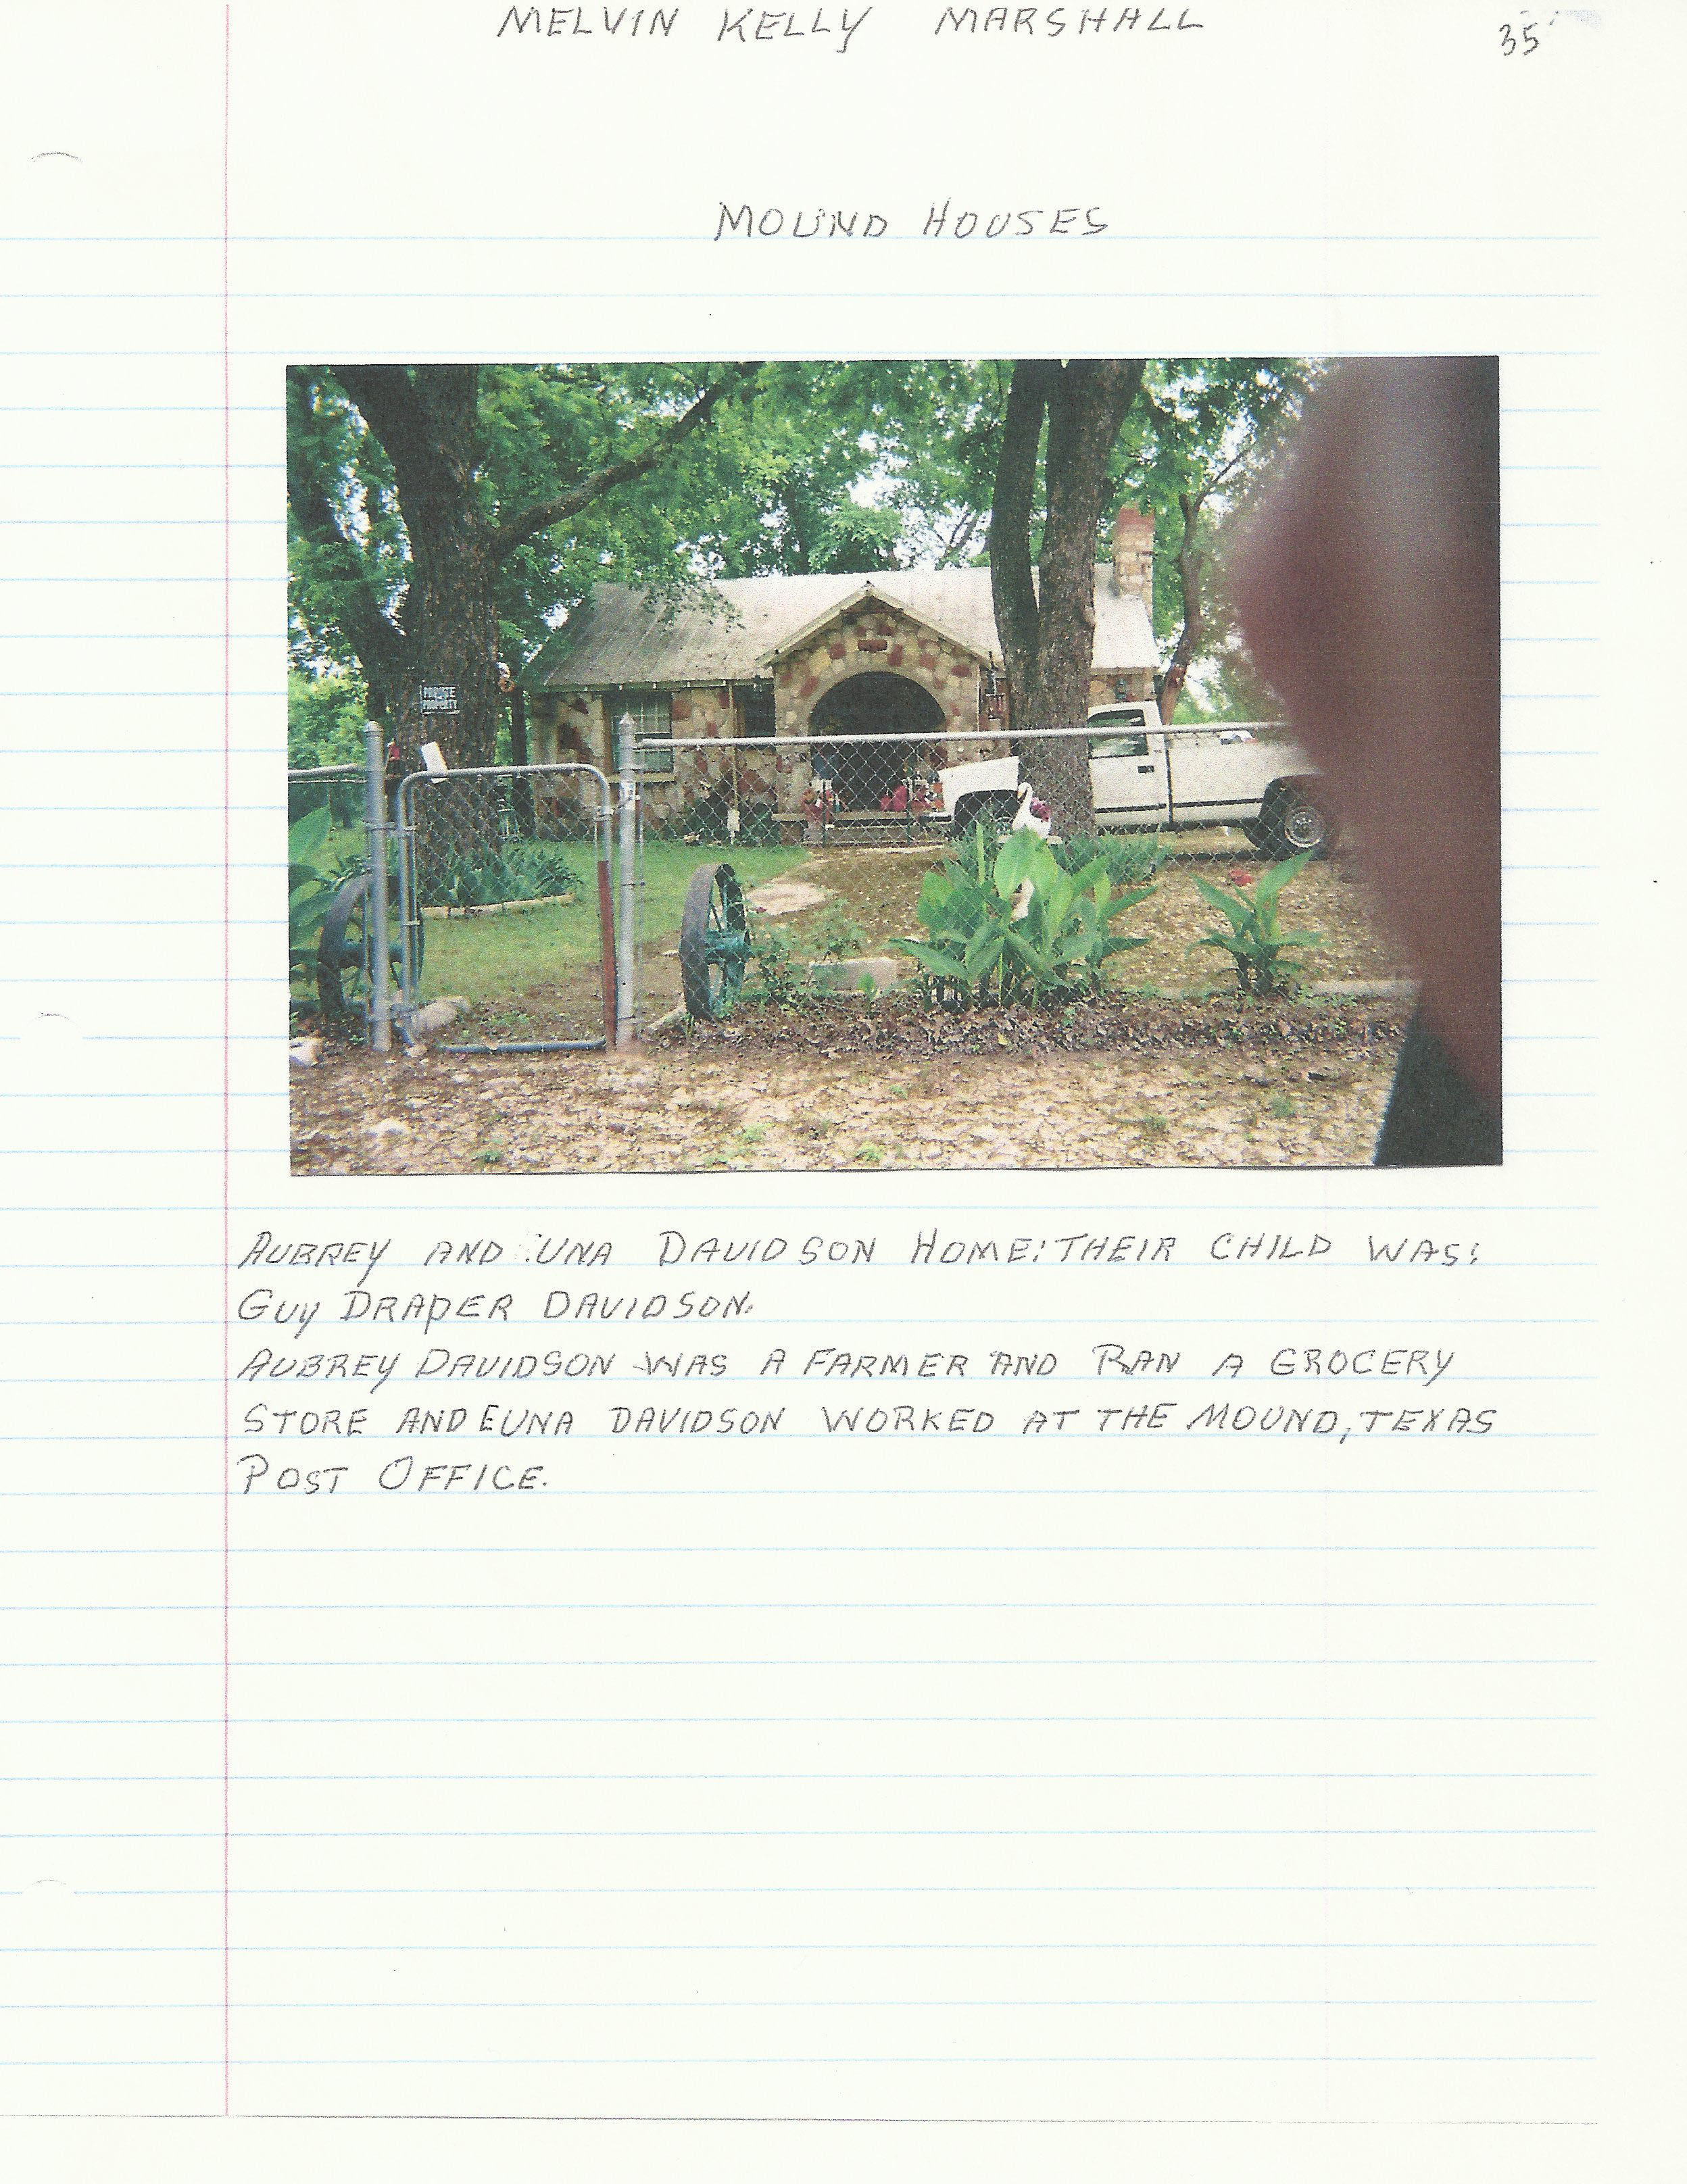 MELVIN KELLY MARSHALL
35
MOUND HOUSES
PRIVATE
PROPERTY
AUBREY AND EUNA DAVIDSON HOME: THEIR CHILD WAS:
GUY DRAPER DAVIDSON.
AUBREY DAVIDSON WAS A FARMER AND RAN A GROCERY
STORE AND EUNA DAVIDSON WORKED AT THE MOUND, TEXAS
POST OFFICE.